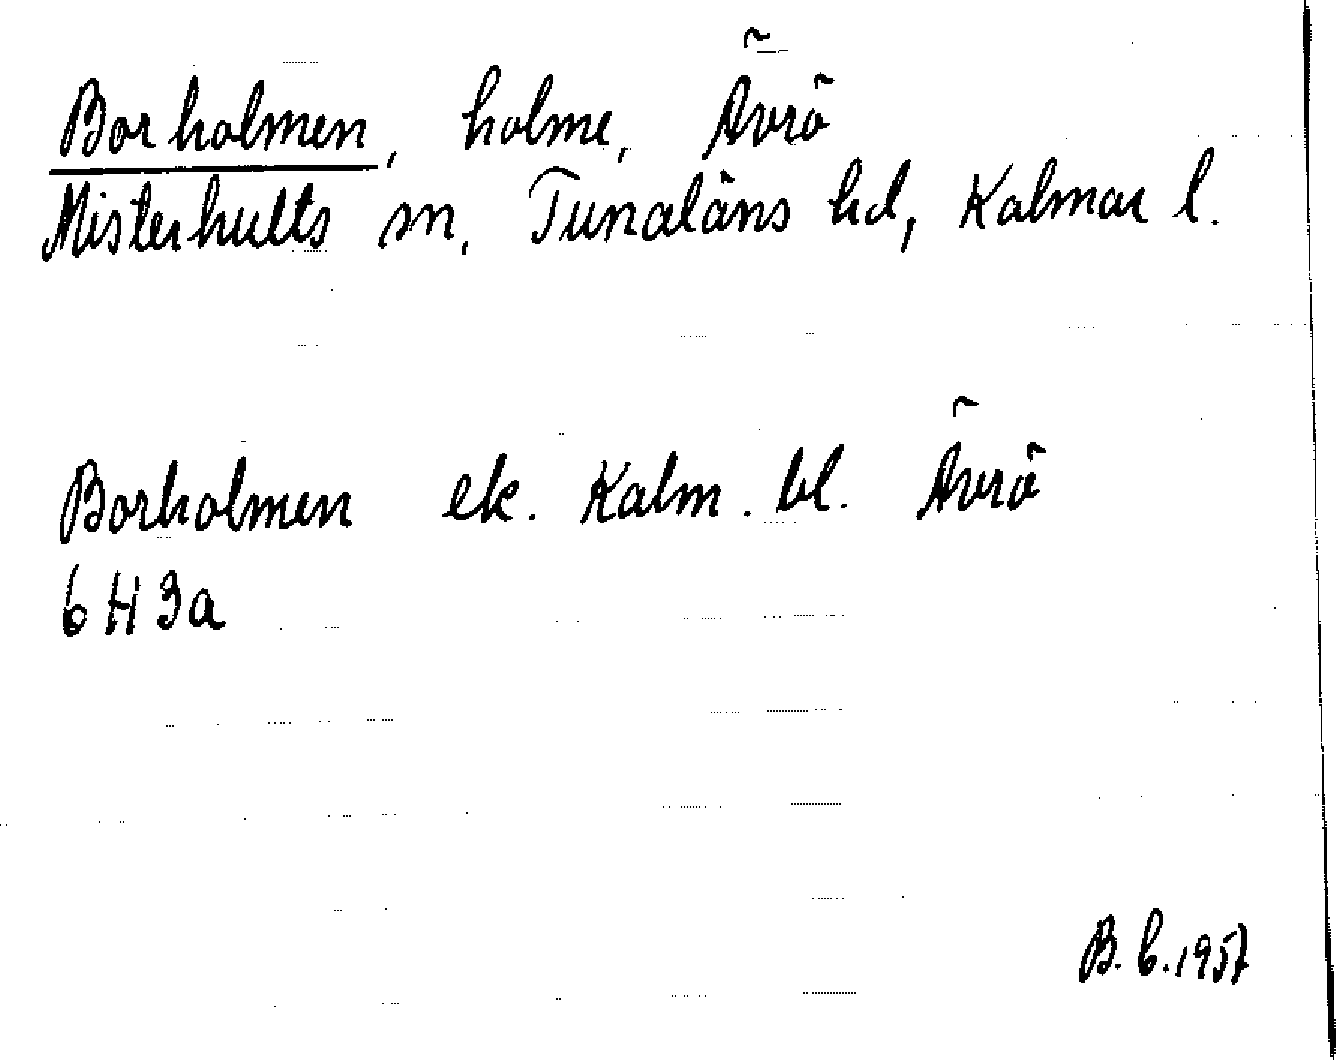 Borholmen, holme, Ävrö
Misterhults sn, Tunaläns hd, Kalmar l.
Borholmen ek. Kalm. bl. Ävrö
6H3a
B.C.1957